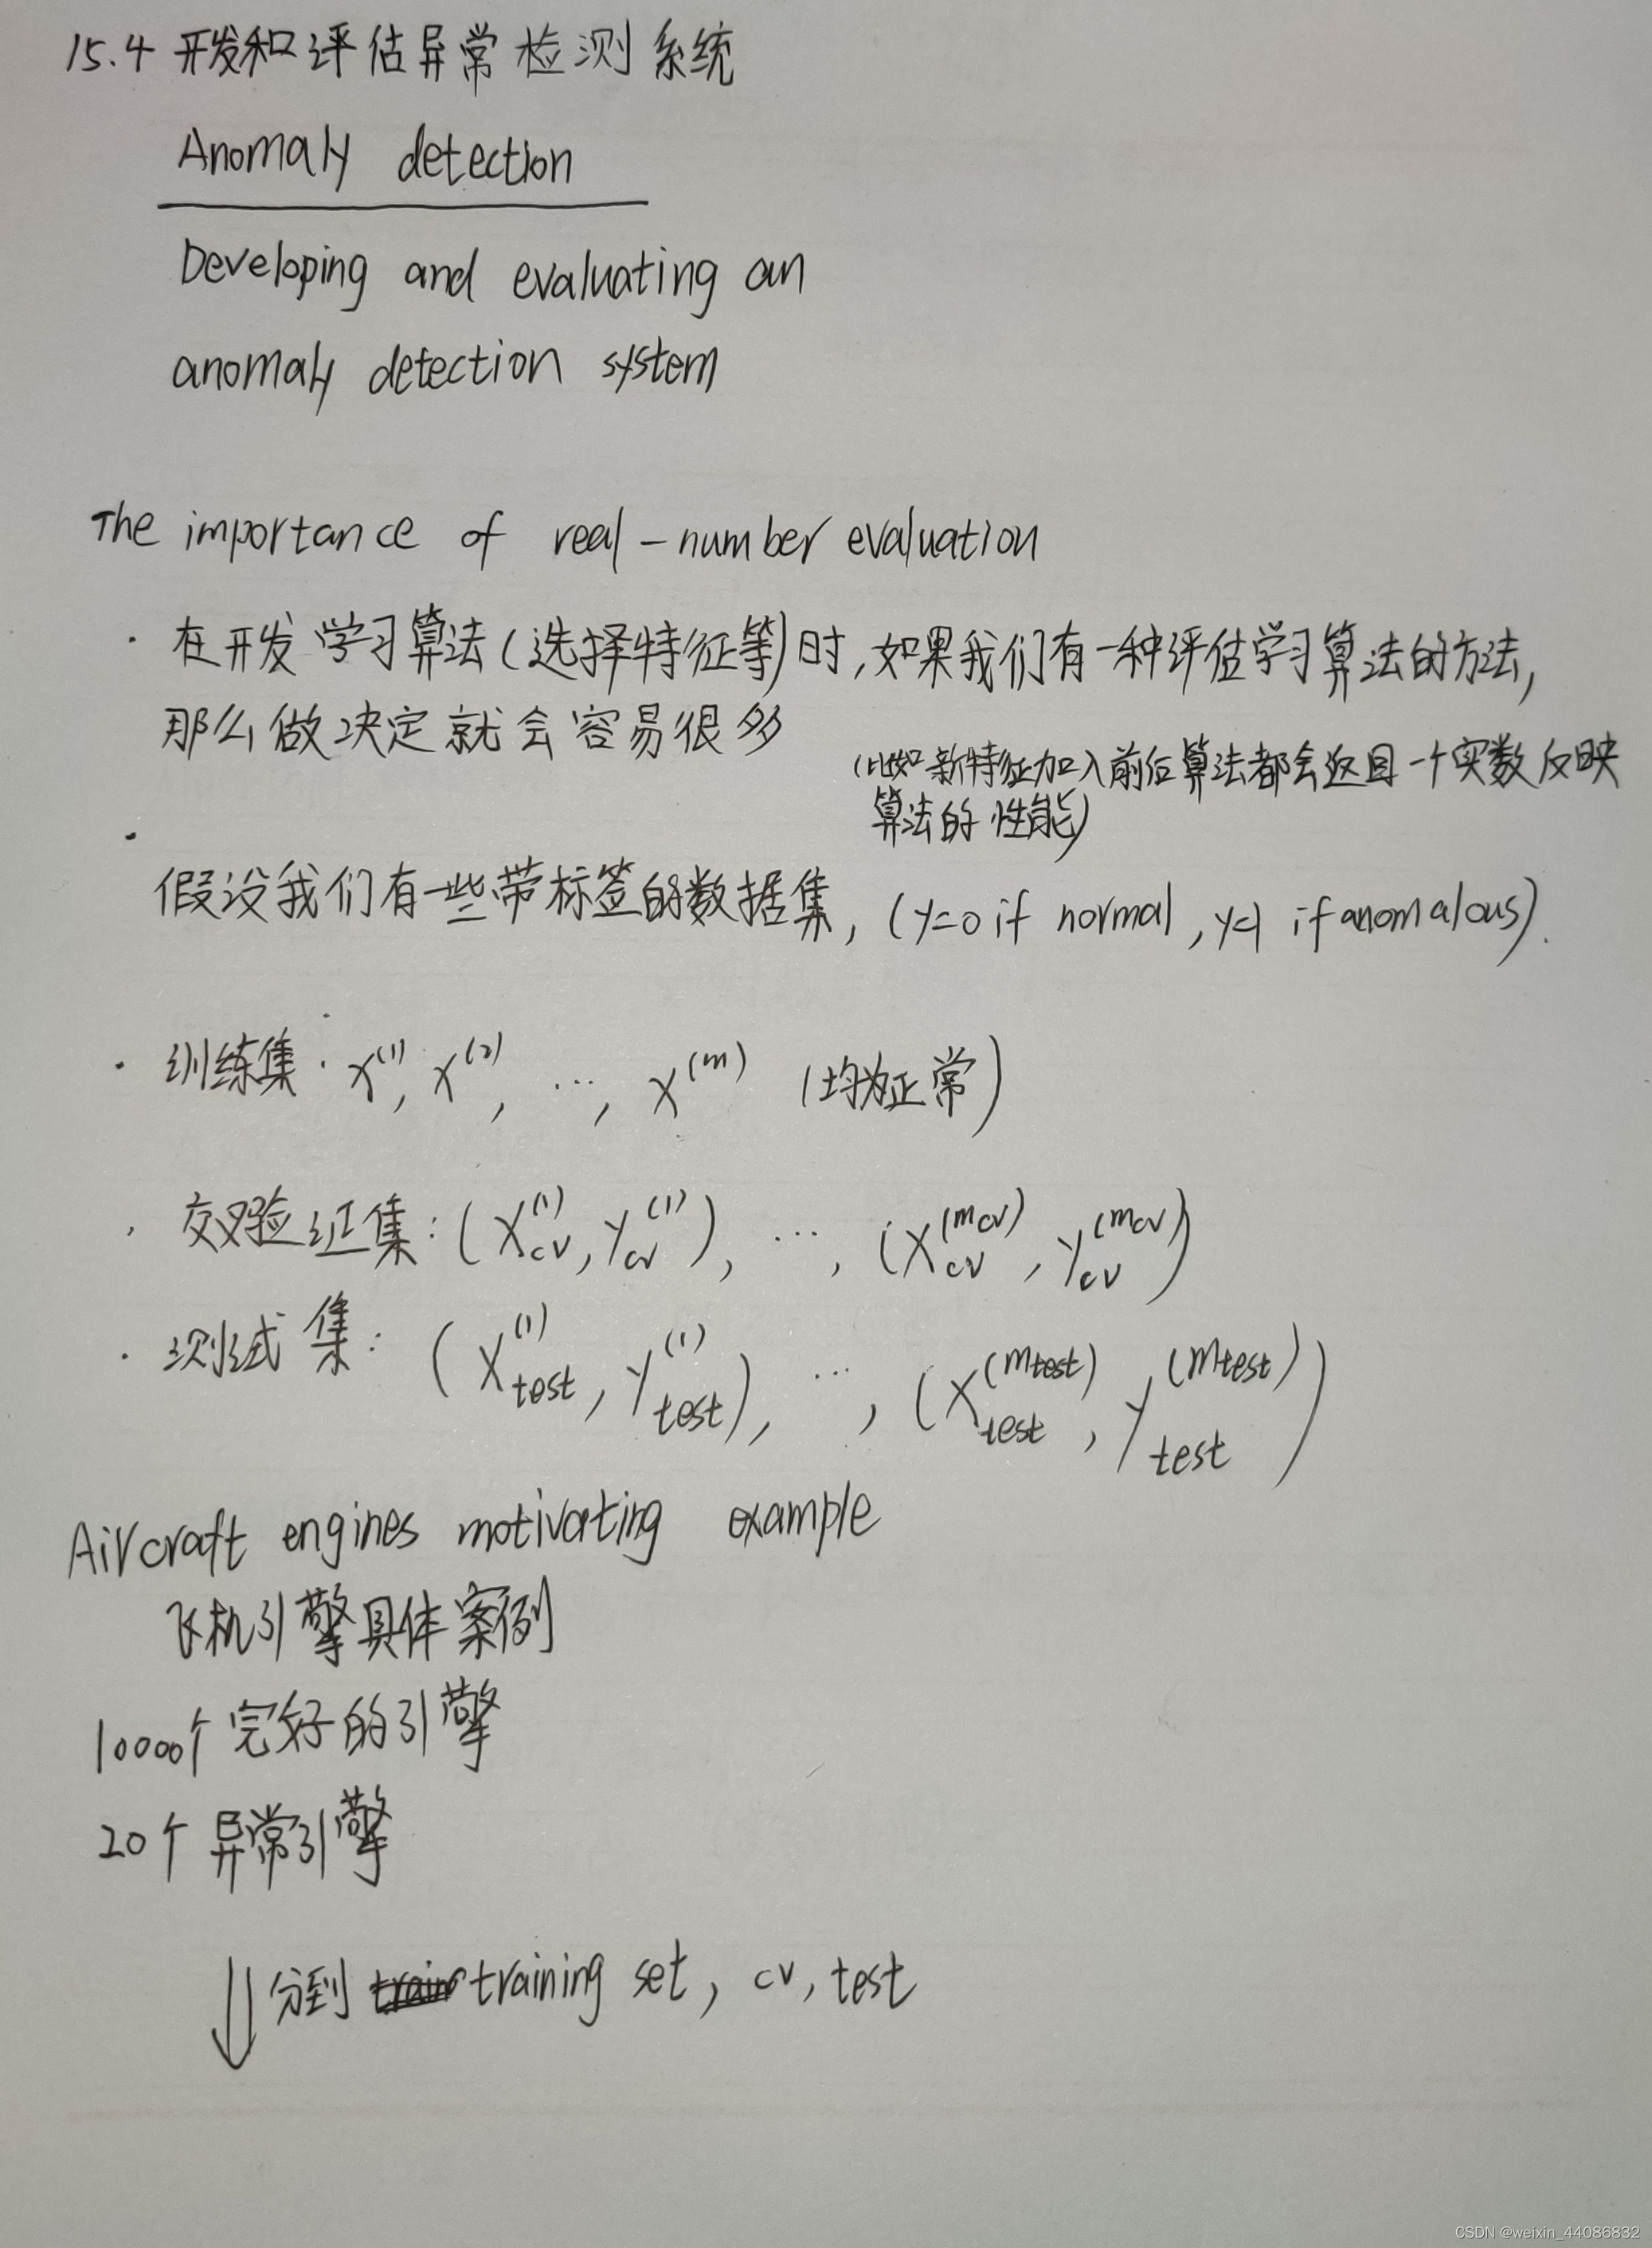 15.4 开发和评估异常检测系统
Anomaly detection
Developing and evaluating an
anomaly detection system
The importance of real-number evaluation
· 在开发学习算法(选择特征等)时,如果我们有一种评估学习算法的方法,
那么做决定就会容易很多
(比如新特征加入前后算法都会返回一个实数反映
算法的性能)
·
假设我们有一些带标签的数据集, (y=0 if normal, y=1 if anomalous).
· 训练集: x^(1), x^(2), ..., x^(m) (均为正常)
· 交叉验证集: (x_cv^(1), y_cv^(1)), ..., (x_cv^(mcv), y_cv^(mcv))
· 测试集: (x_test^(1), y_test^(1)), ..., (x_test^(mtest), y_test^(mtest))
Aircraft engines motivating example
飞机引擎具体案例
10000个完好的引擎
20个异常引擎
分到 training set, cv, test
CSDN @weixin_44086832